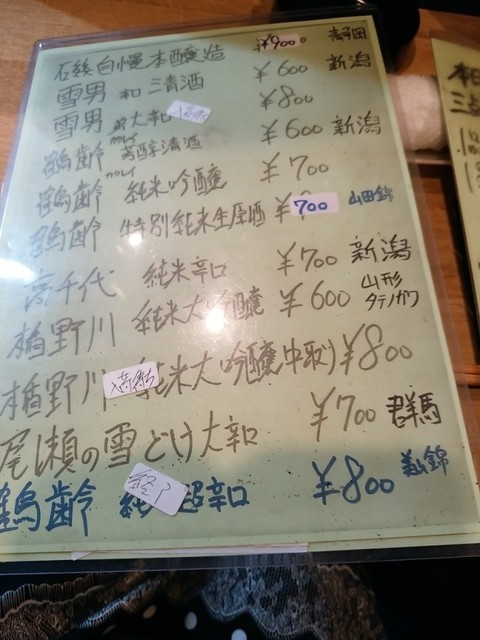 石 自慢 本醸造 ¥900 静岡
雪男 和三清酒 ¥600 新潟
雪男 大辛口 ¥800
鶴齢 芳醇清酒 ¥600 新潟
鶴齢 純米吟醸 ¥700
鶴齢 特別純米生原酒 700 山田錦
高千代 純米辛口 ¥700 新潟
楯野川 純米大吟醸 ¥600 山形
タテノカワ
楯野川 入荷待ち 純米大吟醸中取り ¥800
尾瀬の雪どけ大辛口 ¥700 群馬
鶴齢 純 終了 超辛口 ¥800 美山錦
本日
三